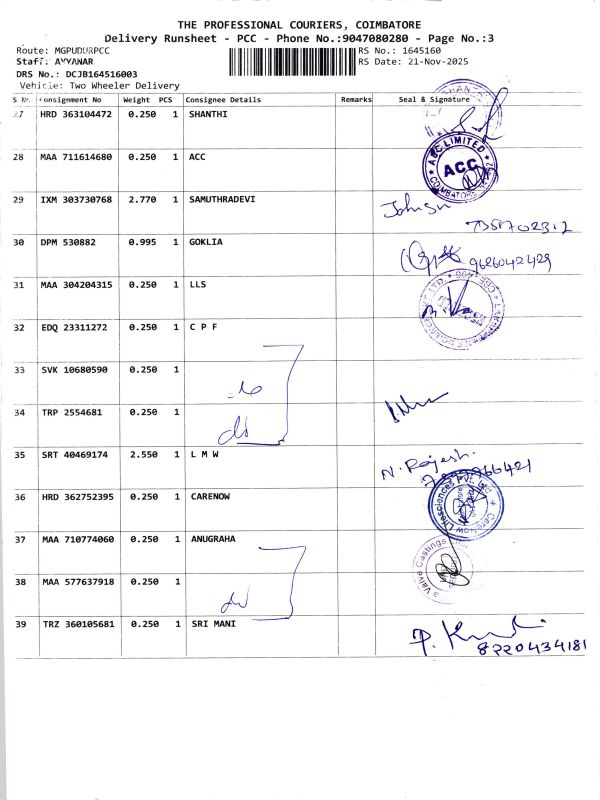 THE PROFESSIONAL COURIERS, COIMBATORE
Delivery Runsheet - PCC - Phone No.:9047080280 - Page No.:3
Route: MGPUDURPCC
Staff: AYYANAR
DRS No.: DCJB164516003
Vehicle: Two Wheeler Delivery
RS No.: 1645160
RS Date: 21-Nov-2025
S No Consignment No Weight PCS Consignee Details Remarks Seal & Signature
27 HRD 363104472 0.250 1 SHANTHI
28 MAA 711614680 0.250 1 ACC
ACC LIMITED
ACC
COIMBATORE
29 IXM 303730768 2.770 1 SAMUTHRADEVI
30 DPM 530882 0.995 1 GOKLIA
9626042429
31 MAA 304204315 0.250 1 LLS
32 EDQ 23311272 0.250 1 C P F
33 SVK 10680590 0.250 1
34 TRP 2554681 0.250 1
35 SRT 40469174 2.550 1 L M W
N. Rajesh
36 HRD 362752395 0.250 1 CARENOW
CareNow Lifesciences Pvt. Ltd
37 MAA 710774060 0.250 1 ANUGRAHA
Valve Castings
38 MAA 577637918 0.250 1
39 TRZ 360105681 0.250 1 SRI MANI
8220434181